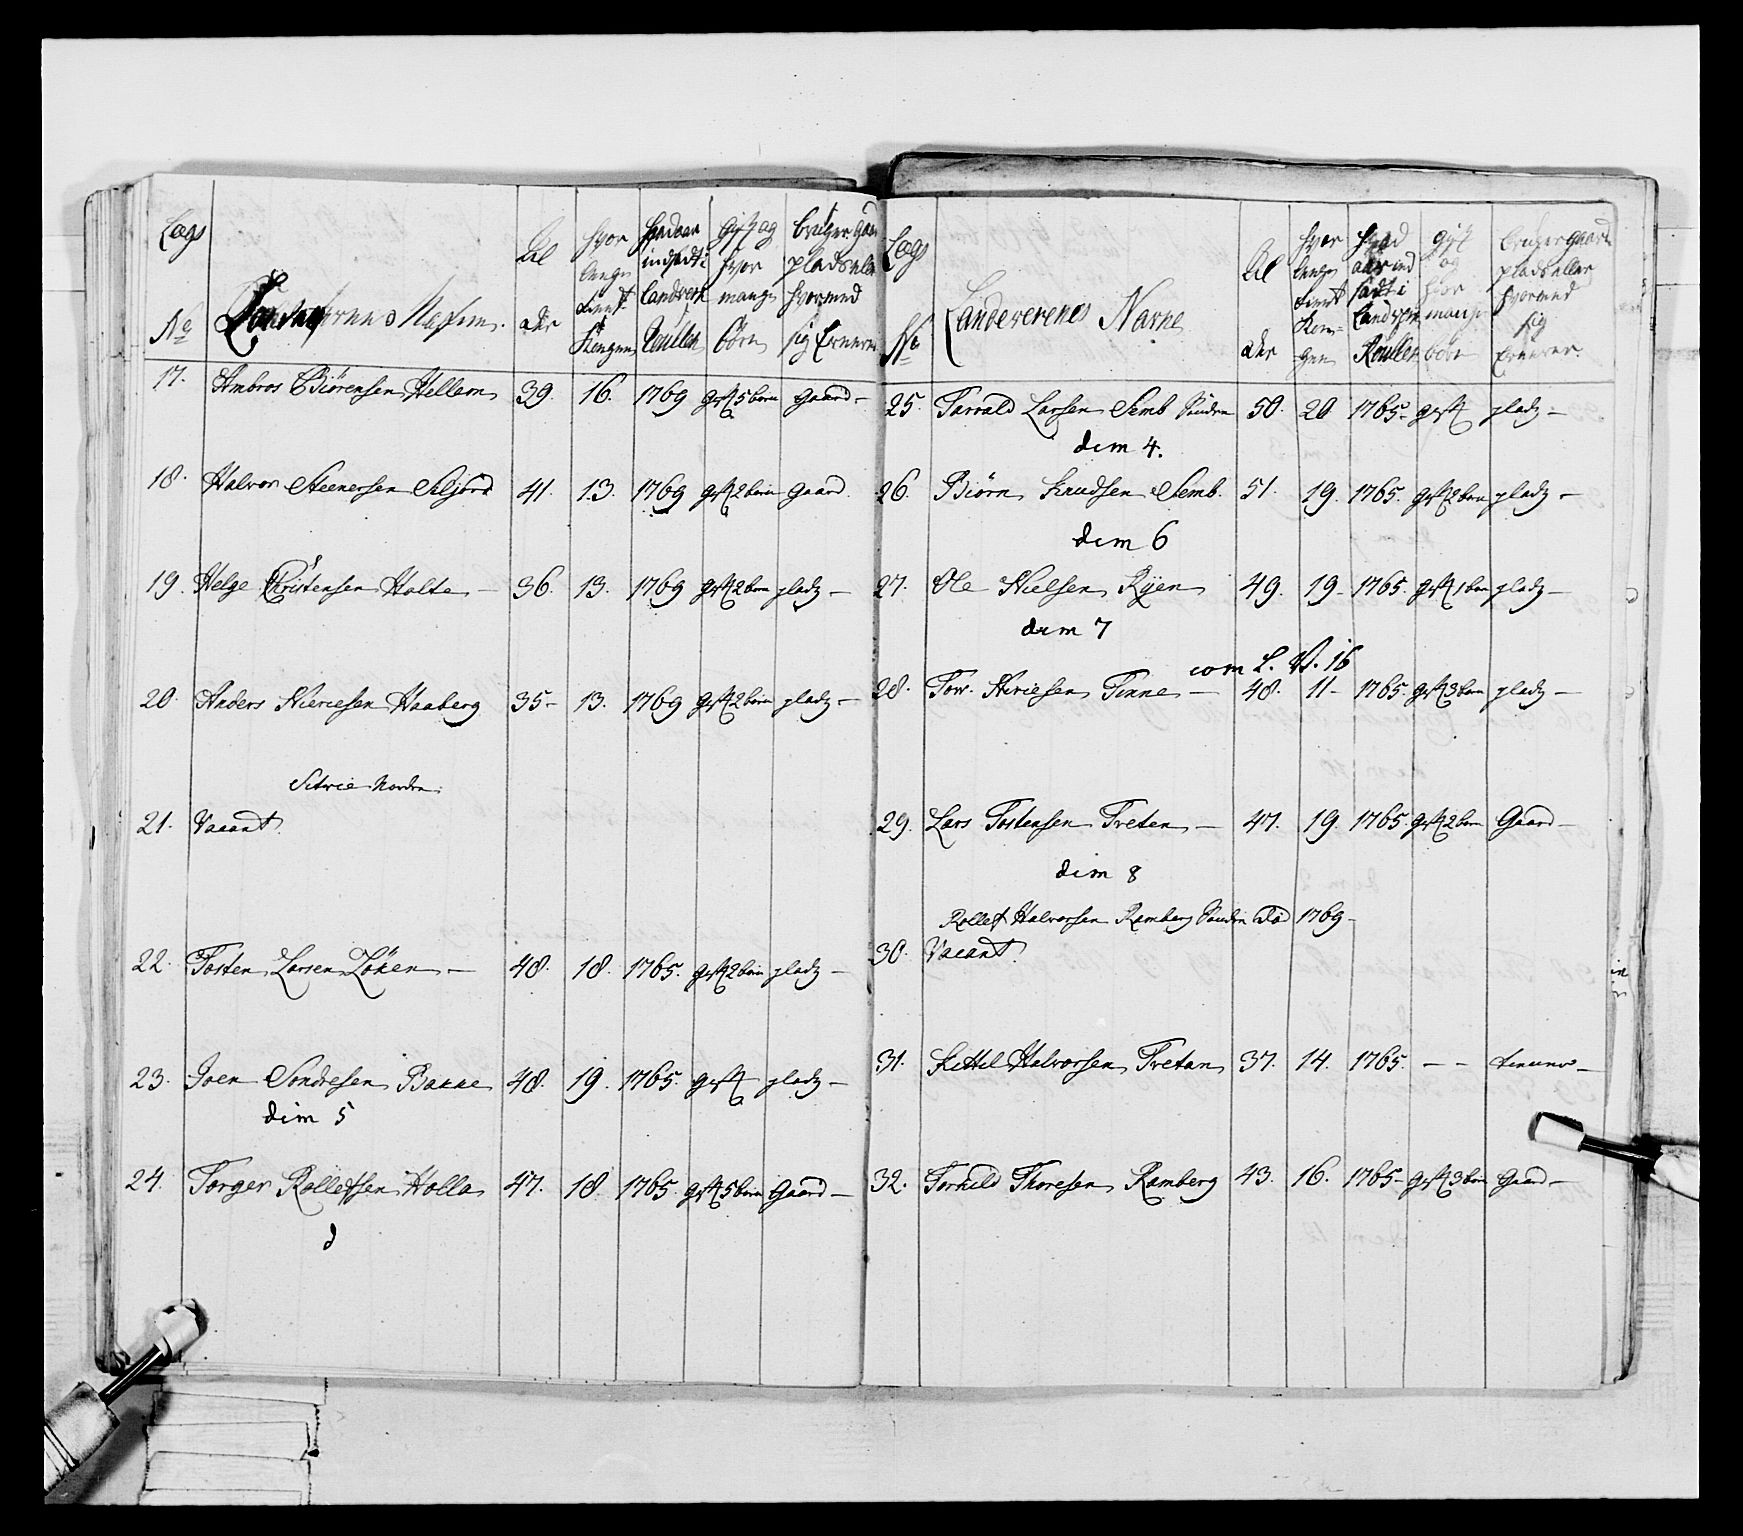 Lægs
No
Landevernes Nafne.
Al
der
Hvor
længe
tient
Kongen
Hvad aar
indsadt i
Landvern
Roullen
Gift og
hvor
mange
børn
bruger Gaard
plads eller
hvormed
sig Ernerer
17. Ambros Biörensen Hellem 39. 16. 1769 gift 5 börn gaard –
18. Halvor Steenersen Seljord 41. 13. 1769 gift 2 börn gaard.
19. Helge Christensen Holte – 36. 13. 1769 gift 2 börn plads –
20. Anders Niricsen Haaberg 35 – 13. 1769 gift 2 börn plads –
Nordre
21. Vacant.
22. Tosten Larsen Löken – 48. 18. 1765. gift 2 börn plads –
23. Joen Sondresen Bakke 48. 19. 1765. gift plads –
dim 5
24. Torger Rollefsen Holla 47. 18. 1765. gift 5 börn Gaard –
d
Lægs
No
Landeverenes Navne
Al
der
Hvor
længe
tient
Kon-
gen
Hvad
aar ind
sadt i
Landvern
Roullen
gift
og
hvor
mange
börn
bruger gaard
plads eller
hvormed
sig
Ernerer.
25. Tarrald Larsen Semb Söndre 50. 20. 1765 – gift plads –
dim 4.
26. Biörn Knudsen Semb. 51. 19. 1765. gift 2 börn plads –
dim 6
27. Ole Nielsen Ryen 49. 19 – 1765. gift 1 barn plads –
dim 7
com L. N. 16
28. Tow. Niricsen Tinne – 48. 11 – 1765. gift 3 börn plads –
29. Lars Tostensen Treten – 47. 19. 1765. gift 2 börn Gaard –
dim 8
Rollef Halvorsen Ramberg Söndre Död 1769 –
30. Vacant.
31. Kittil Halvorsen Tretan 37. 14. 1765. – – tienner –
32. Torkild Thoresen Ramberg 43. 16. 1765 – gift 3 börn Gaard –